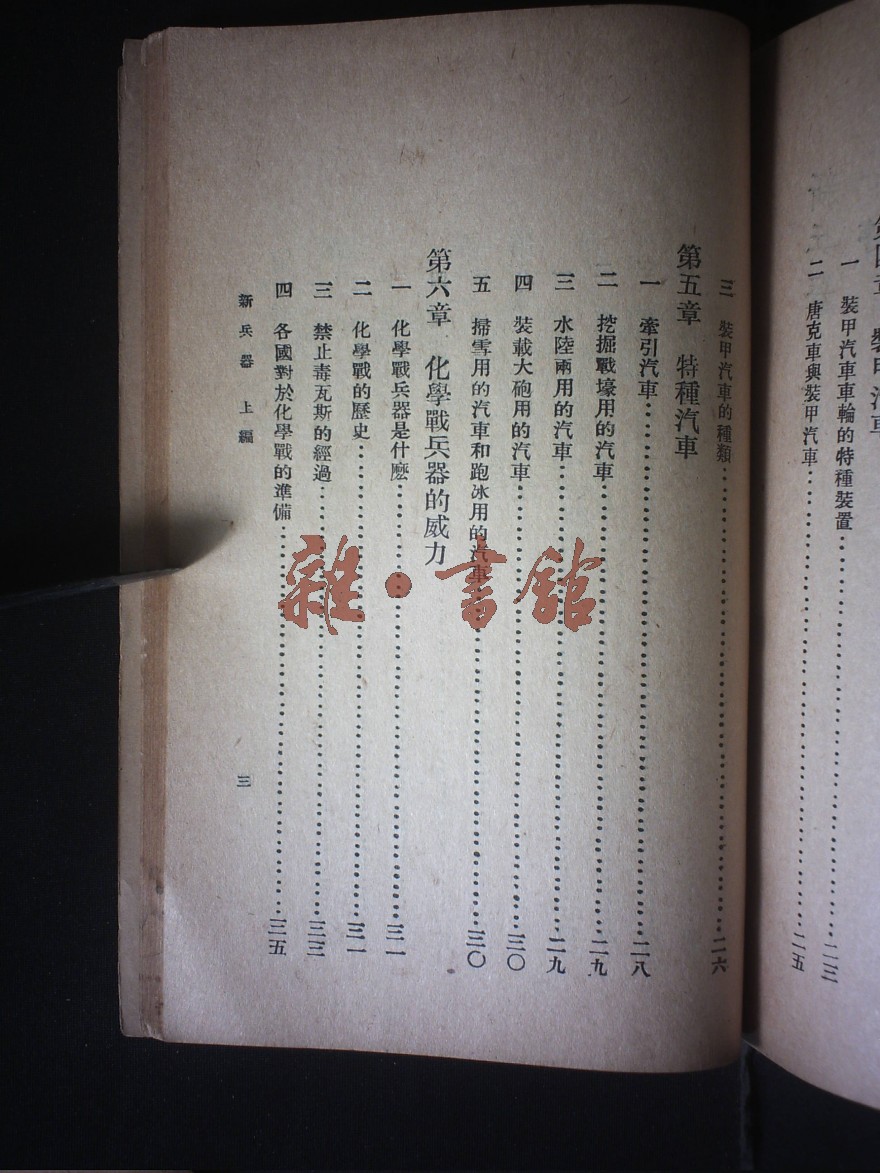 一 裝甲汽車車輪的特種裝置……二三
二 唐克車與裝甲汽車……二五
三 裝甲汽車的種類……二六
第五章 特種汽車
一 牽引汽車……二八
二 挖掘戰壕用的汽車……二九
三 水陸兩用的汽車……二九
四 裝載大砲用的汽車……三〇
五 掃雪用的汽車和跑冰用的汽車……三〇
第六章 化學戰兵器的威力
一 化學戰兵器是什麽……三一
二 化學戰的歷史……三一
三 禁止毒瓦斯的經過……三三
四 各國對於化學戰的準備……三五
新兵器 上編
三
雜·書館